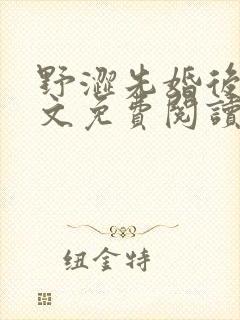 野澀先婚後
文免費閱讀
纽金特